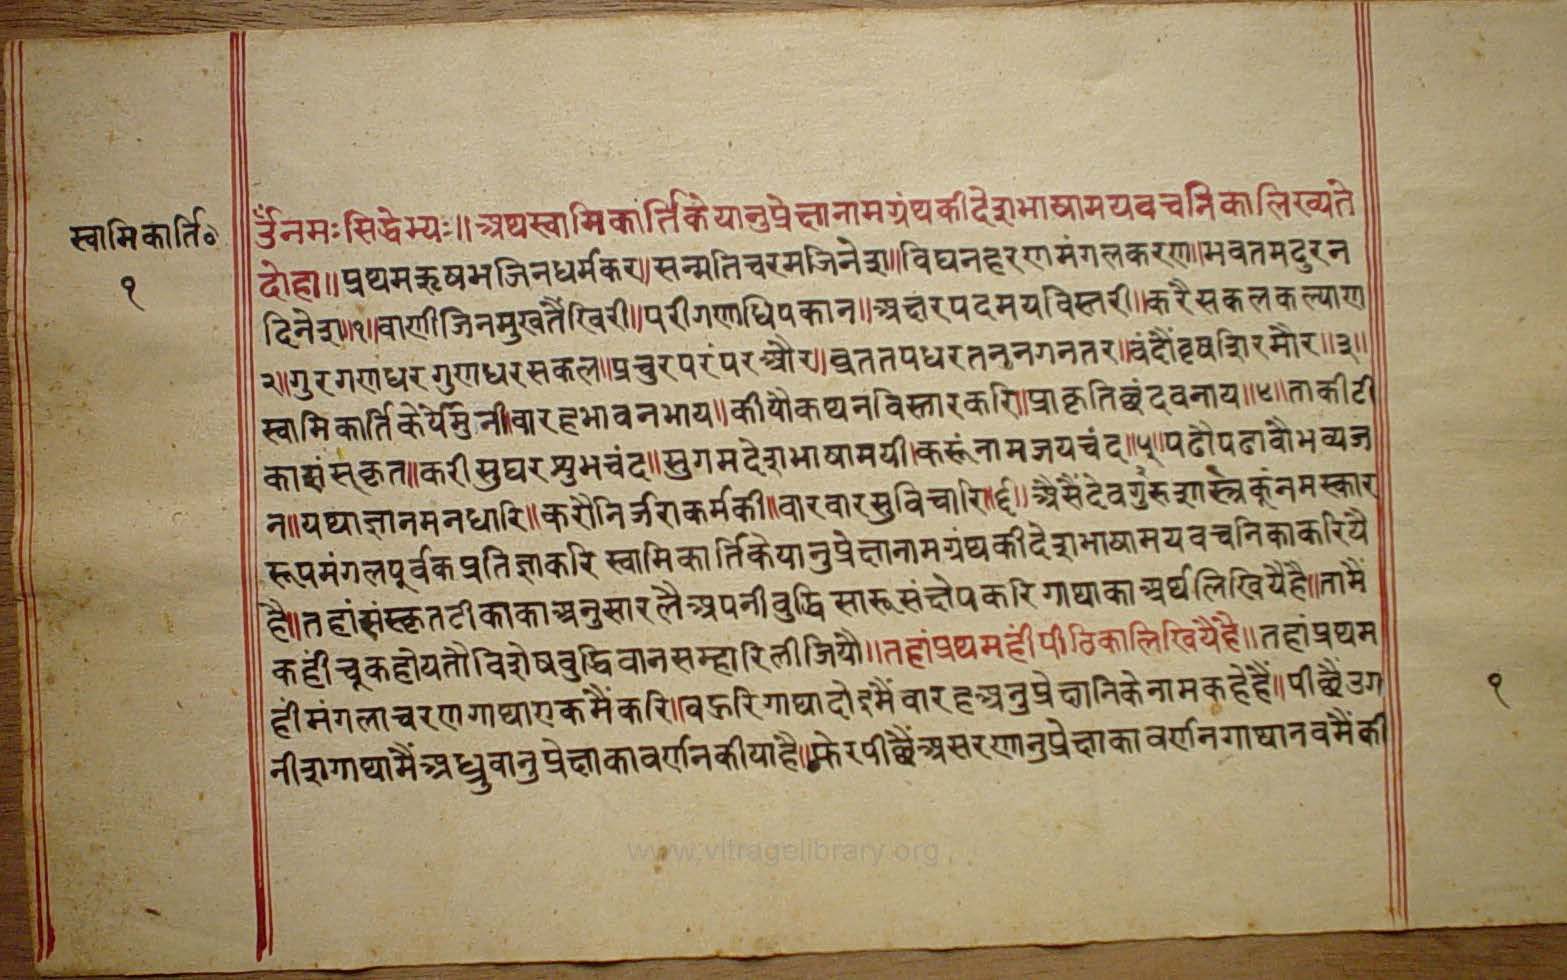 स्वामिकार्ति०
१
ॐनमःसिद्धेभ्यः॥अथस्वामिकार्तिकेयानुप्रेक्षानामग्रंथकीदेशभाषामयवचनिकालिख्यते
दोहा॥प्रथमऋषभजिनधर्मकर।सन्मतिचरमजिनेश॥विघनहरणमंगलकरण॥भवतमदुरन
दिनेश॥१॥वाणीजिनमुखतैंखिरी॥परीगणाधिपकान॥अक्षरपदमयविस्तरी॥करैसकलकल्याण
२॥गुरगणधरगुणधरसकल॥प्रचुरपरंपरऔर।व्रततपधरतनुनगनतर॥वंदौंवृषशिरमौर॥३॥
स्वामिकार्तिकेयेमुनी॥वारहभावनभाय॥कीयौकथनविस्तारकरि॥प्राकृतिछंदवनाय॥४॥ताकीटी
कासंस्कृत॥करीसुघरशुभचंद॥सुगमदेशभाषामयी।करूंनामजयचंद॥५॥पढौपढावौभव्यज
न॥यथाज्ञानमनधारि॥करौनिर्जराकर्मकी॥वारवारसुविचारि॥६॥अैसैंदेवगुरुशास्त्रकूंनमस्कार
रूपमंगलपूर्वकप्रतिज्ञाकरि स्वामिकार्तिकेयानुप्रेक्षानामग्रंथकीदेशभाषामयवचनिकाकरियै
है॥तहांसंस्कृतटीकाकाअनुसारलैअपनीवुद्धि सारूसंक्षेपकरि गाथाकाअर्थलिखियैहै॥तामैं
कहींचूकहोयतौविशेषवुद्धिवानसम्हारिलीजियौ॥तहांप्रथमहींपीठिकालिखियैहै॥तहांप्रथम
हींमंगलाचरणगाथाएकमैंकरि॥वहुरिगाथादोइमैंवारहअनुप्रेक्षानिकेनामकहेहैं॥पीछैंउग
नीशगाथामैंअध्रुवानुप्रेक्षाकावर्णनकीयाहै॥फेरपीछैंअसरणानुप्रेक्षाकावर्णनगाथानवमैंकी
१
www.vitragelibrary.org